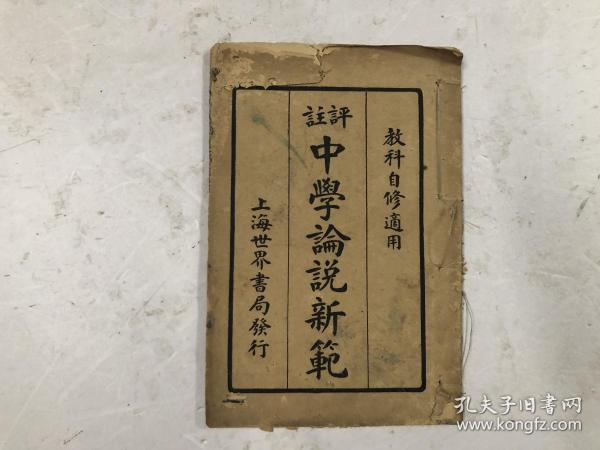 教科自修適用
評註
中學論説新範
上海世界書局發行
孔夫子旧书网
www.kongfz.com